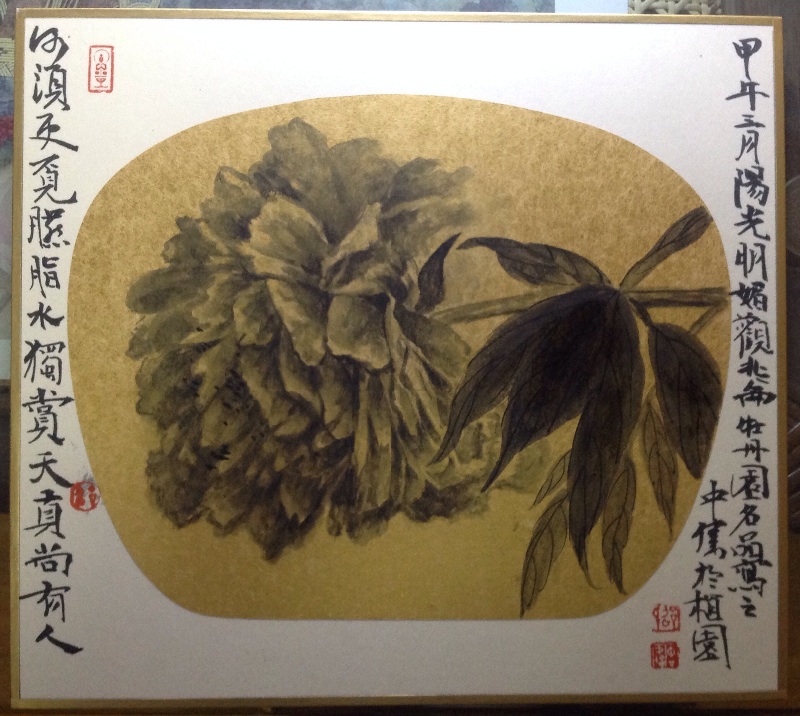 甲午三月陽光明媚觀北侖牡丹園名品寫之
中於植園
何須更覓臙脂水獨賞天真尚有人